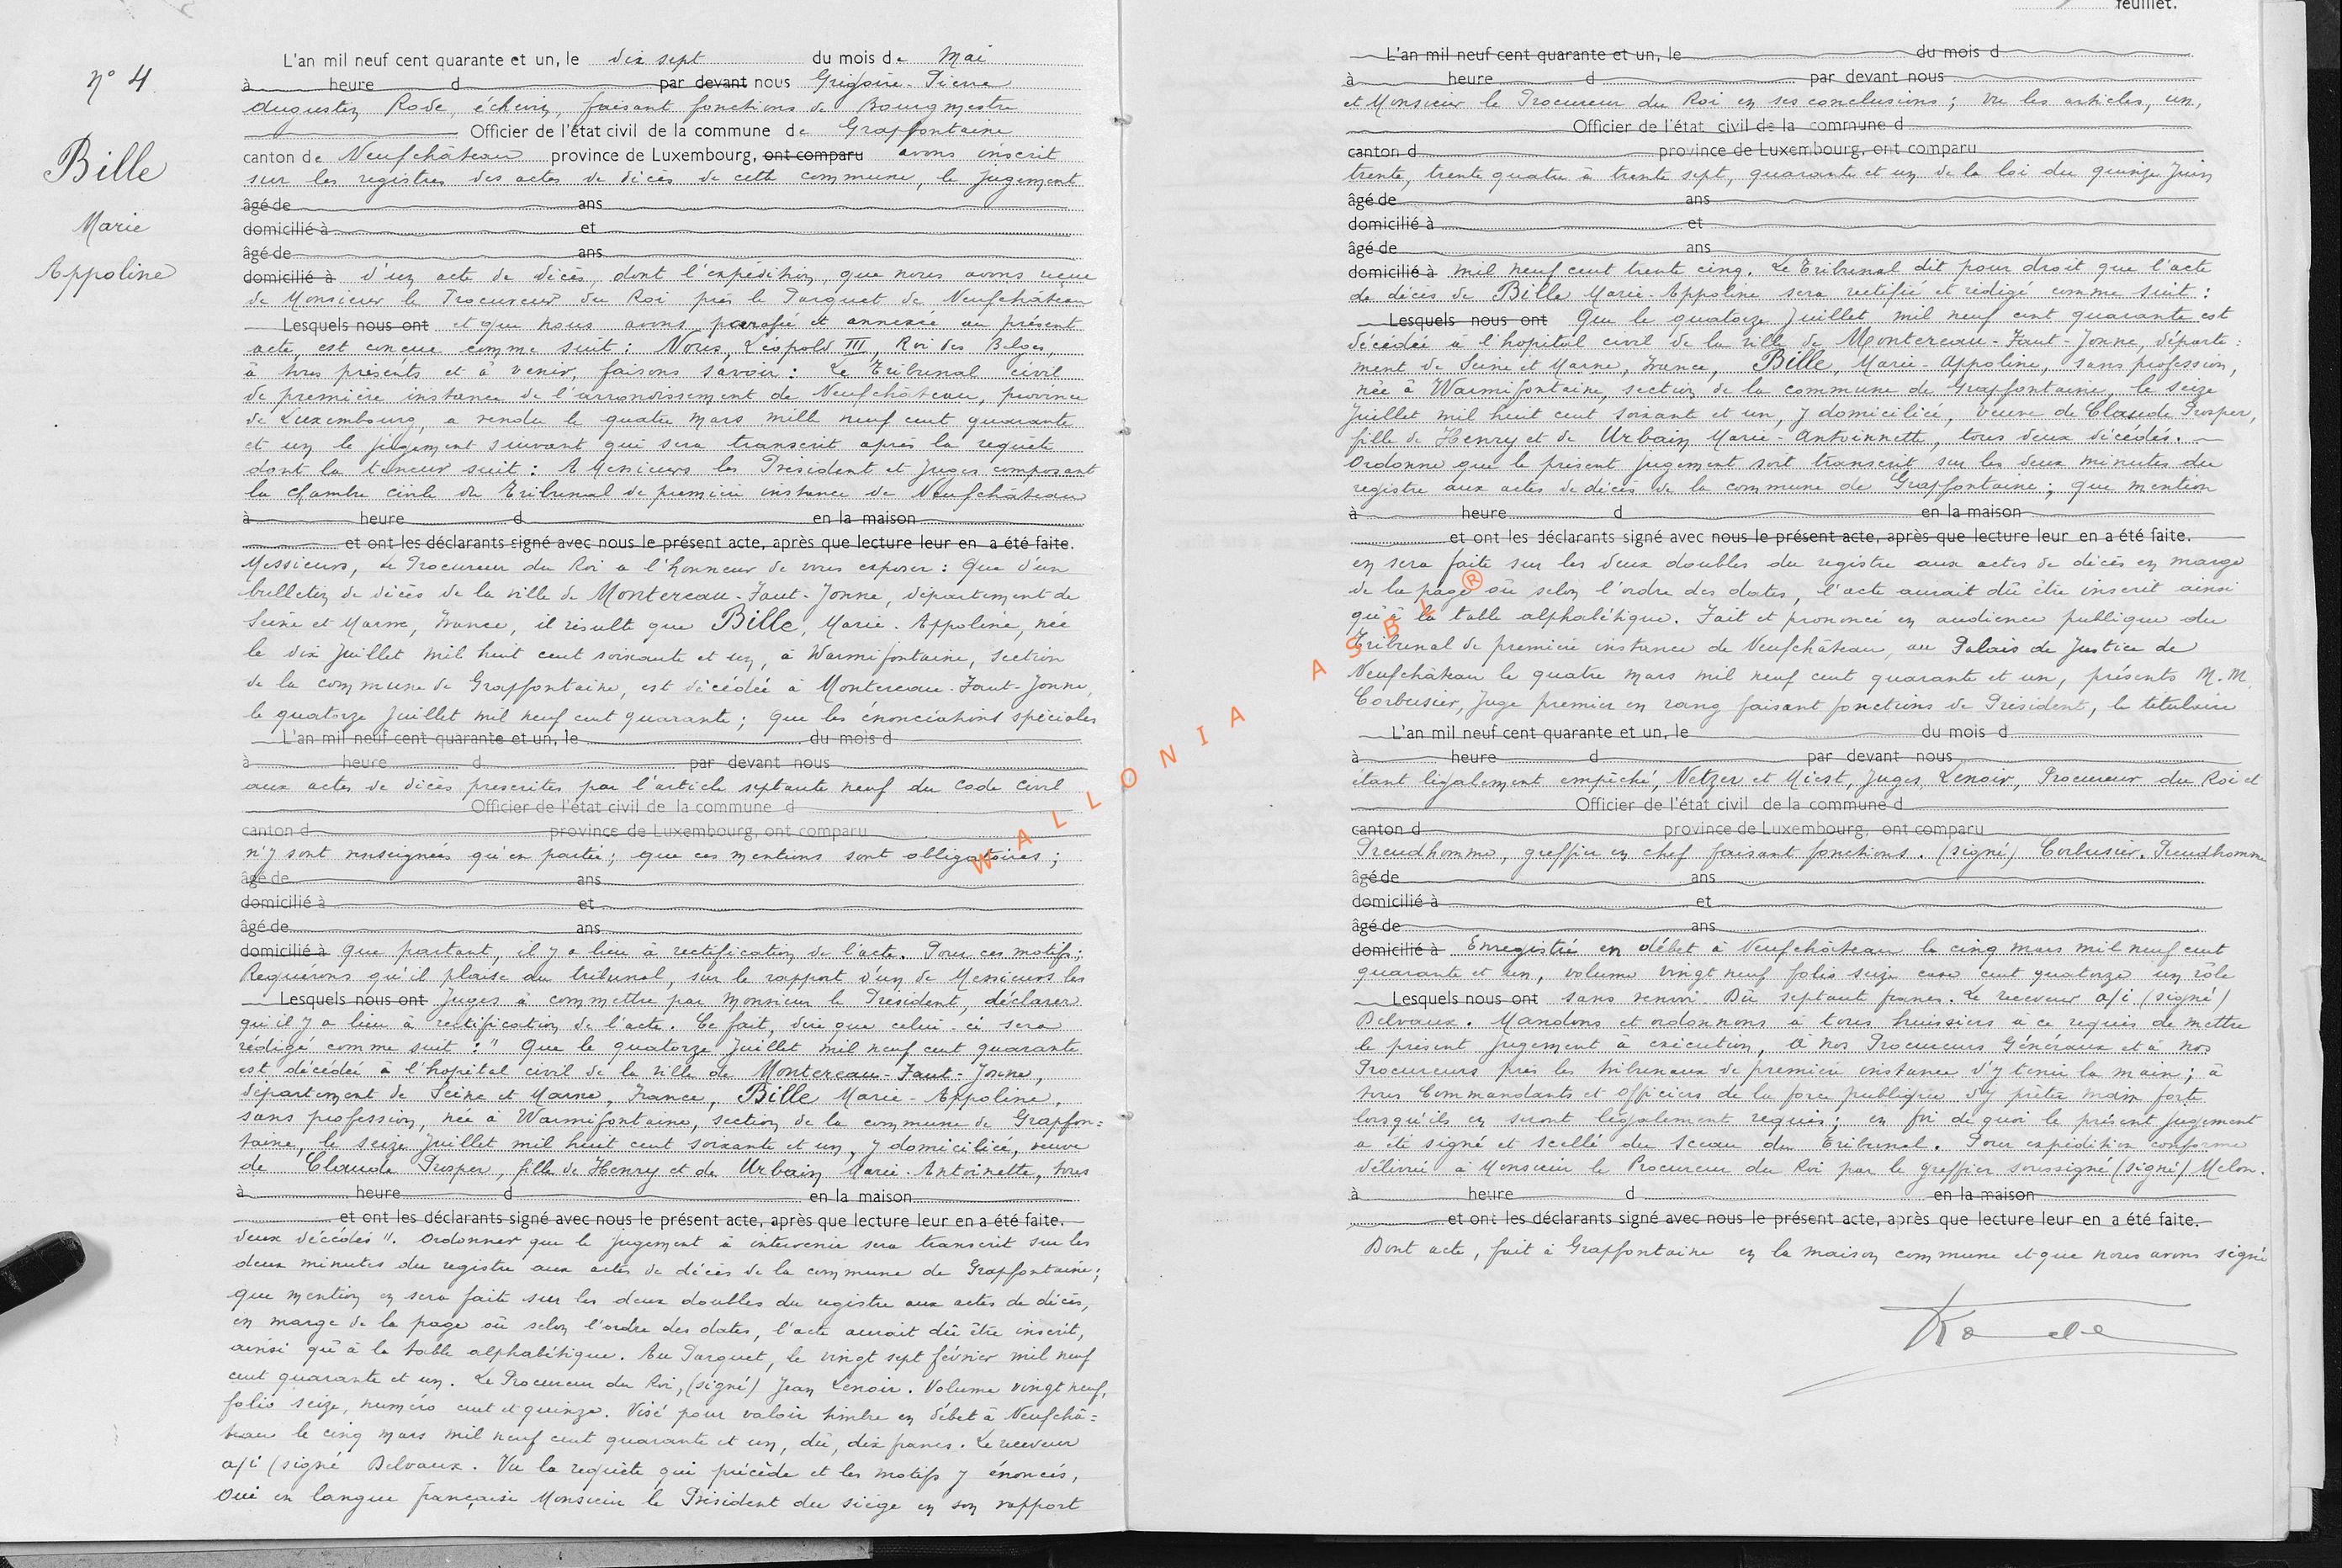 feuillet.
n° 4
Bille
Marie
Appoline
L'an mil neuf cent quarante et un, le dix sept du mois de Mai
à heure d par devant nous Grégoire-Pierre
Augustin Rode, échevin, faisant fonctions de Bourgmestre
Officier de l'état civil de la commune de Grapfontaine
canton de Neufchâteau province de Luxembourg, ont comparu avons inscrit
sur les registres des actes de décès de cette commune, le jugement
âgé de ans
domicilié à et
âgé de ans
domicilié à d'un acte de décès, dont l'expédition, que nous avons reçue
de Monsieur le Procureur du Roi près le Parquet de Neufchâteau
Lesquels nous ont et que nous avons parafié et annexée au présent
acte, est conçue comme suit : Nous, Léopold III, Roi des Belges,
à tous présents et à venir, faisons savoir : Le Tribunal civil
de première instance de l'arrondissement de Neufchâteau, province
de Luxembourg, a rendu le quatre mars mill neuf cent quarante
et un le jugement suivant qui sera transcrit après la requête
dont la teneur suit : A Messieurs les Président et Juges composant
la Chambre civile du Tribunal de première instance de Neufchâteau
à heure d en la maison
et ont les déclarants signé avec nous le présent acte, après que lecture leur en a été faite.
Messieurs, Le Procureur du Roi a l'honneur de vous exposer : Que d'un
bulletin de décès de la ville de Montereau-Faut-Jonne, département de
Seine et Marne, France, il résulte que Bille, Marie-Appoline, née
le dix Juillet mil huit cent soixante et un, à Warmifontaine, section
de la commune de Grapfontaine, est décédée à Montereau-Faut-Jonne,
le quatorze Juillet mil neuf cent quarante ; que les énonciations spéciales
L'an mil neuf cent quarante et un, le du mois d
à heure d par devant nous
aux actes de décès prescrites par l'article septante neuf du Code civil
Officier de l'état civil de la commune d
canton d province de Luxembourg, ont comparu
n'y sont renseignées qu'en partie ; que ces mentions sont obligatoires ;
âgé de ans
domicilié à et
âgé de ans
domicilié à que partant, il y a lieu à rectification de l'acte. Pour ces motifs ;
Requérons qu'il plaise au tribunal, sur le rapport d'un de Messieurs les
Lesquels nous ont Juges à commettre par Monsieur le Président, déclarer
qu'il y a lieu à rectification de l'acte. Ce fait, dire que celui-ci sera
rédigé comme suit : " Que le quatorze Juillet mil neuf cent quarante
est décédée à l'hopital civil de la ville de Montereau-Faut-Jonne,
département de Seine et Marne, France, Bille Marie-Appoline,
sans profession, née à Warmifontaine, section de la commune de Grapfon=
taine, le seize Juillet mil huit cent soixante et un, y domiciliée, veuve
de Claude Prosper, fille de Henry et de Urbain Marie-Antoinette, tous
à heure d en la maison
et ont les déclarants signé avec nous le présent acte, après que lecture leur en a été faite.
deux décédés ". Ordonner que le jugement à intervenir sera transcrit sur les
deux minutes du registre aux actes de décès de la commune de Grapfontaine ;
que mention en sera faite sur les deux doubles du registre aux actes de décès,
en marge de la page où selon l'ordre des dates, l'acte aurait dû être inscrit,
ainsi qu'à la table alphabétique. Au Parquet, le vingt sept février mil neuf
cent quarante et un. Le Procureur du Roi, (signé) Jean Lenoir. Volume vingt neuf,
folio seize, numéro cent et quinze. Visé pour valoir timbre en débet à Neufchâ=
teau le cinq mars mil neuf cent quarante et un, dû, dix francs. Le receveur
a/i (signé Delvaux. Vu la requête qui précède et les motifs y énoncés,
Ouï en langue française Monsieur le Président du siège en son rapport
L'an mil neuf cent quarante et un, le du mois d
à heure d par devant nous
et Monsieur le Procureur du Roi en ses conclusions ; Vu les articles, un,
Officier de l'état civil de la commune d
canton d province de Luxembourg, ont comparu
trente, trente quatre à trente sept, quarante et un de la loi du quinze Juin
âgé de ans
domicilié à et
âgé de ans
domicilié à mil neuf cent trente cinq. Le Tribunal dit pour droit que l'acte
de décès de Bille Marie-Appoline sera rectifié et rédigé comme suit :
Lesquels nous ont Que le quatorze Juillet mil neuf cent quarante est
décédée à l'hopital civil de la ville de Montereau-Faut-Jonne, départe=
ment de Seine et Marne, France, Bille, Marie-Appoline, sans profession,
née à Warmifontaine, section de la commune de Grapfontaine, le seize
Juillet mil huit cent soixant et un, y domiciliée, veuve de Claude Prosper,
fille de Henry et de Urbain Marie-Antoinnette, tous deux décédés.
Ordonne que le présent jugement soit transcrit sur les deux minutes du
registre aux actes de décès de la commune de Grapfontaine ; que mention
à heure d en la maison
et ont les déclarants signé avec nous le présent acte, après que lecture leur en a été faite.
en sera faite sur les deux doubles du registre aux actes de décès en marge
de la page où selon l'ordre des dates, l'acte aurait dû être inscrit ainsi
qu'à la table alphabétique. Fait et prononcé en audience publique du
Tribunal de première instance de Neufchâteau, au Palais de Justice de
Neufchâteau le quatre mars mil neuf cent quarante et un, présents M.M.
Corbusier, Juge premier en rang faisant fonctions de Président, le titulaire
L'an mil neuf cent quarante et un, le du mois d
à heure d par devant nous
étant légalement empêché, Netzer et Miest, Juges, Lenoir, Procureur du Roi et
Officier de l'état civil de la commune d
canton d province de Luxembourg, ont comparu
Preudhomme, greffier en chef faisant fonctions. (signé) Corbusier. Preudhomme
âgé de ans
domicilié à et
âgé de ans
domicilié à Enregistré en débet à Neufchâteau le cinq mars mil neuf cent
quarante et un, volume vingt neuf folio seize case cent quatorze un rôle
Lesquels nous ont sans renvoi. Dû septant francs. Le receveur a/i (signé)
Delvaux. Mandons et ordonnons à tous huissiers à ce requis de mettre
le présent jugement à exécution, A nos Procureurs Généraux et à nos
Procureurs près les tribunaux de première instance d'y tenir la main ; à
tous Commandants et Officiers de la force publique d'y prêter main forte
lorsqu'ils en seront légalement requis ; en foi de quoi le présent jugement
a été signé et scellé du sceau du Tribunal. Pour expédition conforme
délivrée à Monsieur le Procureur du Roi par le greffier soussigné (signé) Melon.
à heure d en la maison
et ont les déclarants signé avec nous le présent acte, après que lecture leur en a été faite.
Dont acte, fait à Grapfontaine en la maison commune et que nous avons signé
Rode
WALLONIA ASBL ®